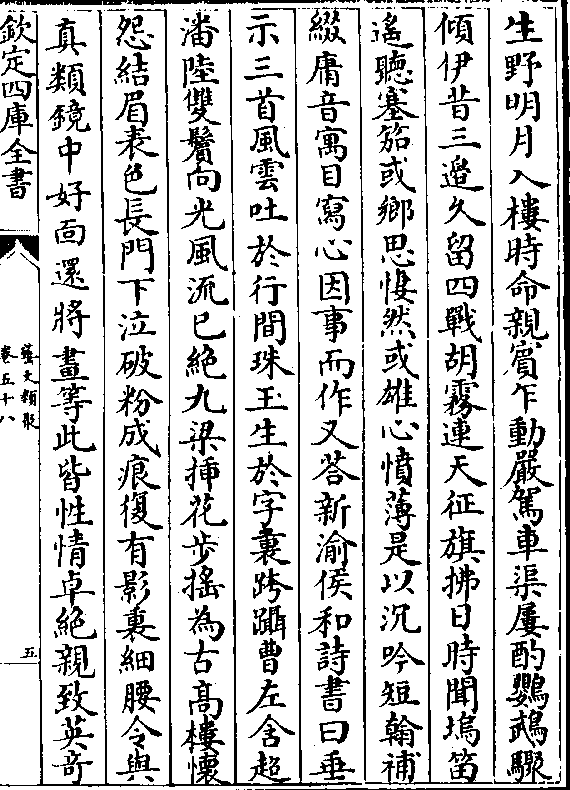 生野明月入樓時命親賓乍動嚴駕車渠屢酌鸚鵡驟
傾伊昔三邉久留四戰胡霧連天征旗拂日時聞塢笛
遙聽塞笳或鄉思悽然或雄心憤薄是以沉吟短翰補
綴庸音寓目寫心因事而作又答新渝侯和詩書曰垂
示三首風雲吐於行間珠玉生於字裏跨躡曹左含超
潘陸雙鬢向光風流已絶九梁揷花步摇為古高樓懷
怨結眉表色長門下泣破粉成痕復有影裏細腰令與
真類鏡中好面還將畫等此皆性情卓絶親致英竒
欽定四庫全書
藝文類聚
卷五十八
五